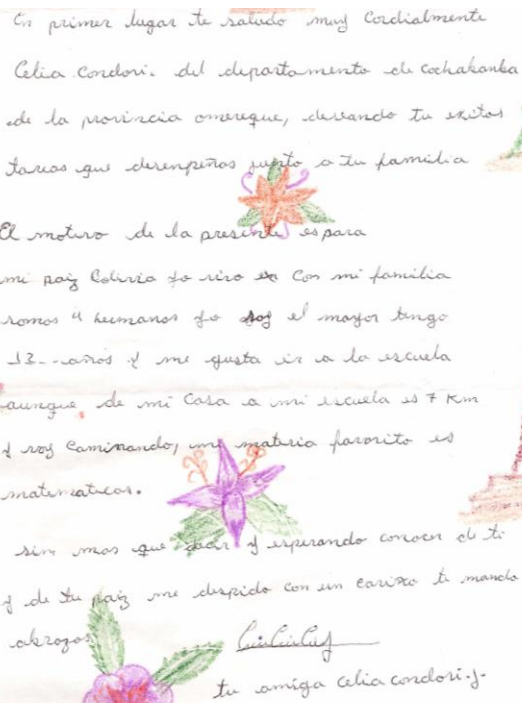 En primer lugar te saludo muy Cordialmente
Celia Condori. del departamento de cochabanba
de la provincia omereque, deseando tu exitos
tareas que desenpeñas junto a tu familia
El motivo de la presente es para
mi paiz Bolivia yo vivo en Con mi familia
somos 4 hermanos yo soy el mayor tengo
13 años y me gusta ir a la escuela
aunque de mi Casa a mi escuela es 7 Km
y voy Caminando, mi materia favorito es
matematicas.
sin mas que decir y esperando conocer de ti
y de tu paiz me despido con un cariño te mando
abrazos
tu amiga celia condori.J.